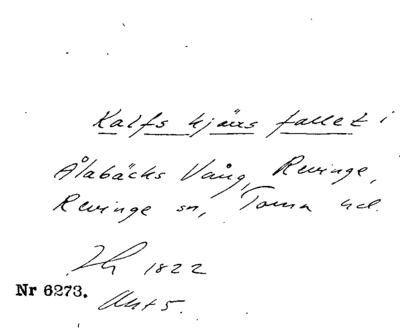 Kalfs kjärs fallet i
Ålabäcks Vång, Revinge,
Revinge sn, Torna hd.
1822
Nr 6273.
Akt 5.